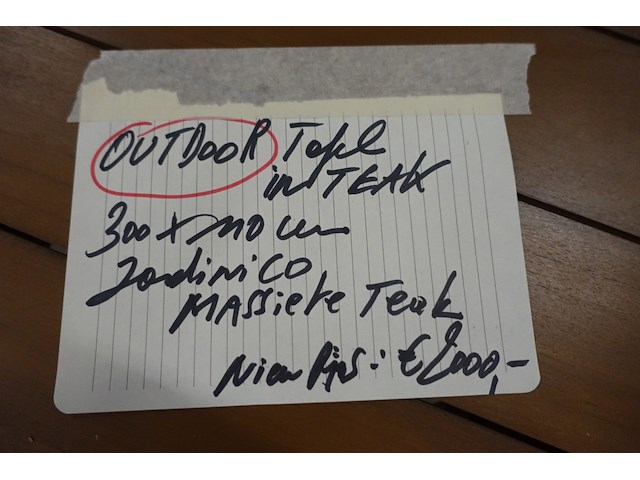 OUTDOOR Tafel
in TEAK
300 x 110 cm
JardiniCO
MAssieve Teak
Nieuw Prijs: €